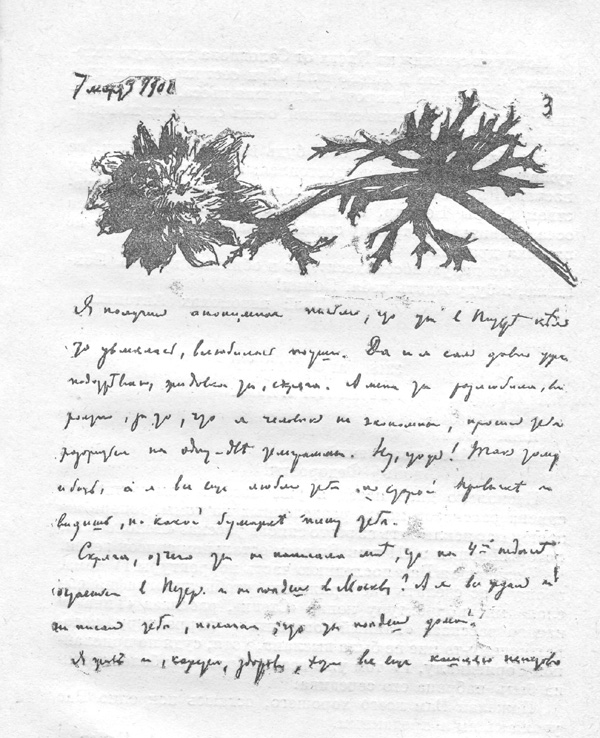 7 март 1901
3
Я получил анонимное письмо, что ты в Питере кѣм
то увлеклась, влюбилась по уши. Да и я сам давно уж
подозрѣваю, жидовка ты, скряга. А меня ты разлюбила, ве
роятно, за то, что я человек не экономный, просил тебя
разориться на одну-двѣ телеграммы. Ну, что ж! Так тому
и быть, а я все еще люблю тебя по старой привычкѣ и
видишь, на какой бумагѣ пишу тебѣ.
Скряга, отчего ты не написала мнѣ, что на 4-й недѣлѣ
остаешься в Петер. и не поѣдешь в Москву? А я все ждал и
не писал тебѣ, полагая, что ты поѣдешь домой.
Я жив и, кажется, здоров, хотя все еще кашляю неистово